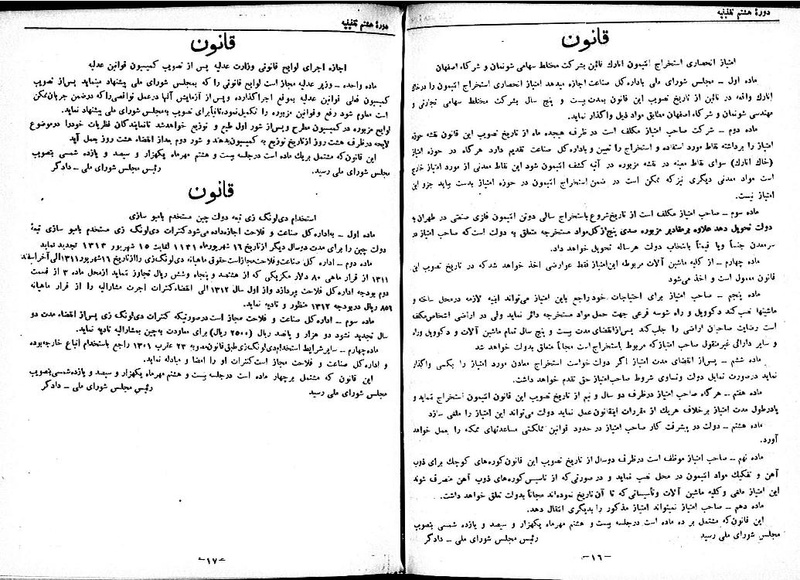 دورهٔ هشتم تقنینیه
قانون
امتیاز انحصاری استخراج انتیمون انارک نائین بشرکت مختلط سهامی شونمان و شرکاء اصفهان
ماده اول ــ مجلس شورای ملی باداره کل صناعت اجازه میدهد امتیاز انحصاری استخراج انتیمون را در خاک
انارک واقعه در نائین از تاریخ تصویب این قانون بمدت بیست و پنج سال بشرکت مختلط سهامی تجارتی و
مهندسی شونمان و شرکاء اصفهان مطابق مواد ذیل واگذار نماید.
ماده دوم ــ شرکت صاحب امتیاز مکلف است در ظرف هیجده ماه از تاریخ تصویب این قانون نقشه حوزه
امتیاز را برداشته نقاط مورد استفاده و استخراج را تعیین و باداره کل صناعت تقدیم دارد هرگاه در حوزه امتیاز
(خاک انارک) سوای نقاط معینه در نقشه مزبوره در آتیه کشف انتیمون شود این نقاط معدنی از مورد امتیاز خارج
است مواد معدنی دیگری نیز که ممکن است در ضمن استخراج انتیمون در حوزه امتیاز بدست بیاید جزو این
امتیاز نیست.
ماده سوم ــ صاحب امتیاز مکلف است از تاریخ شروع باستخراج سالی دوتن انتیمون فلزی صنعتی در طهران به
دولت تحویل دهد علاوه بر مقادیر مزبوره صدی پنج از کل مواد مستخرجه متعلق به دولت است که صاحب امتیاز در
سر معدن جنساً ویا قیمتاً بانتخاب دولت هرساله تحویل خواهد داد.
ماده چهارم ــ از کلیه ماشین آلات مربوطه این امتیاز فقط عوارضی اخذ خواهد شد که در تاریخ تصویب این
قانون معمول است و اخذ می‌شود
ماده پنجم ــ صاحب امتیاز برای احتیاجات خود راجع باین امتیاز می‌تواند ابنیه لازمه در محل ساخته و
ماشینها نصب کند دکوویل و راه شوسه فرعی جهت حمل مواد مستخرجه دائر نماید ولی در اراضی اشخاص مکلف
است رضایت صاحبان اراضی را جلب کند پس از انقضای مدت بیست و پنج سال تمام ماشین آلات و دکوویل وراه
و سایر دارائی غیرمنقول صاحب امتیاز که مربوط باستخراج است مجاناً متعلق بدولت خواهد شد
ماده ششم ــ پس از انقضای مدت امتیاز اگر دولت خواست استخراج معادن مورد امتیاز را بکسی واگذار
نماید درصورت تمایل دولت وتساوی شروط صاحب امتیاز حق تقدم خواهد داشت.
ماده هفتم ــ هرگاه صاحب امتیاز درظرف دو سال و نیم از تاریخ تصویب این قانون انتیمون استخراج ننماید و
یا درطول مدت امتیاز برخلاف هریک از مقررات این قانون عمل نماید دولت می‌تواند این امتیاز را ملغی سازد
ماده هشتم ــ دولت در پیشرفت کار صاحب امتیاز در حدود قوانین مملکتی مساعدتهای ممکنه را بعمل خواهد
آورد.
ماده نهم ــ صاحب امتیاز موظف است در ظرف دوسال از تاریخ تصویب این قانون کوره‌های کوچک برای ذوب
آهن و تفکیک مواد انتیمون در محل نصب نماید و در صورتی که از تاسیس کوره‌های ذوب آهن منصرف شوند
این امتیاز ملغی و کلیه ماشین آلات وتأسیساتی که تا آن تاریخ نموده‌اند مجاناً بدولت تعلق خواهد داشت.
ماده دهم ــ صاحب امتیاز نمیتواند امتیاز مذکور را بدیگری انتقال دهد.
این قانون که مشتمل بر ده ماده است درجلسه بیست و هشتم مهرماه یکهزار و سیصد و یازده شمسی بتصویب
مجلس شورای ملی رسید رئیس مجلس شورای ملی ــ دادگر
ــ۱۶ــ
دورهٔ هشتم تقنینیه
قانون
اجازه اجرای لوایح قانونی وزارت عدلیه پس از تصویب کمیسیون قوانین عدلیه
ماده واحده ــ وزیر عدلیه مجاز است لوایح قانونی را که بمجلس شورای ملی پیشنهاد مینماید پس از تصویب
کمیسیون فعلی قوانین عدلیه بموقع اجرا گذارده و پس از آزمایش آنها در عمل نواقصی را که در ضمن جریان ممکن
است معلوم شود رفع و قوانین مزبوره را تکمیل نموده ثانیاً برای تصویب به مجلس شورای ملی پیشنهاد نماید.
لوایح مزبوره در کمیسیون مطرح و پس از شور اول طبع و توزیع خواهد شد تا نمایندگان نظریات خود را در موضوع
لایحه در ظرف هشت روز از تاریخ توزیع به کمیسیون بدهند و شور دوم بعد از انقضاء هشت روز بعمل آید
این قانون که مشتمل بریک ماده است درجلسه بیست و هشتم مهرماه یکهزار و سیصد و یازده شمسی بتصویب
مجلس شورای ملی رسید. رئیس مجلس شورای ملی ــ دادگر
قانون
استخدام دی‌اونگ زی تبعه دولت چین متخصص بامبو سازی
ماده اول ــ به اداره کل صناعت و فلاحت اجازه داده می‌شود کنترات دی‌اونگ زی متخصص بامبو سازی تبعهٔ
دولت چین را برای مدت دوسال دیگر از تاریخ ۱۶ شهریورماه ۱۳۱۱ لغایت ۱۵ شهریور ۱۳۱۳ تجدید نماید
ماده دوم ــ اداره کل صناعت و فلاحت مجاز است حقوق ماهیانه دی‌اونگ زی را از تاریخ ۱۶ شهریور ۱۳۱۱ الی آخر اسفند
۱۳۱۱ از قرار ماهی ۸۰ دلار مکزیکی که از هشتصد و پنجاه وشش ریال تجاوز ننماید از محل ماده ۳ از قسمت
دوم بودجه اداره کل فلاحت بپردازد و از اول سال ۱۳۱۲ الی انقضاء کنترات اجرت مشارالیه را از قرار ماهیانه
۸۵۶ ریال در بودجه ۱۳۱۲ منظور و تادیه نماید.
ماده سوم ــ اداره کل صناعت و فلاحت مجاز است درصورتیکه کنترات دی‌اونگ زی پس از انقضاء مدت دو
سال تجدید نشود دو هزار و پانصد ریال (۲۵۰۰ ریال) برای معاودت به چین بمشارالیه تادیه نماید.
ماده چهارم ــ سایر شرایط استخدام دی‌اونگ زی طبق قانون مصوبه ۲۳ عقرب ۱۳۰۱ راجع باستخدام اتباع خارجه بوده
و اداره کل صناعت و فلاحت مجاز است کنترات او را امضا و مبادله نماید.
این قانون که مشتمل برچهار ماده است درجلسه بیست و هشتم مهرماه یکهزار و سیصد و یازده شمسی بتصویب
مجلس شورای ملی رسید رئیس مجلس شورای ملی ــ دادگر
ــ۱۷ــ